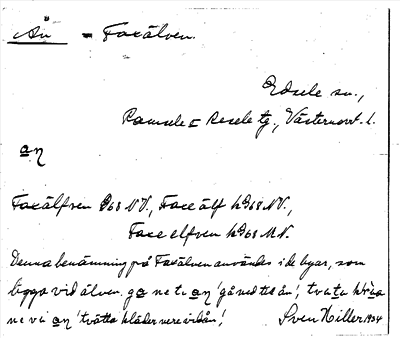 Ån = Faxälven.
Edsele sn.,
Ramsele o Resele tg., Västernorrl. l.
aŋ
Faxälfven G68 NV., Faxe älf hG68 NV.,
Faxe elfven hG68 M.N.
Denna benämning på Faxälven användes i de byar, som
ligga vid älven. ga ne te aŋ 'gå ned till ån', tvata
ne vi aŋ 'tvätta kläder nere vid ån'. Sven Hiller 1934